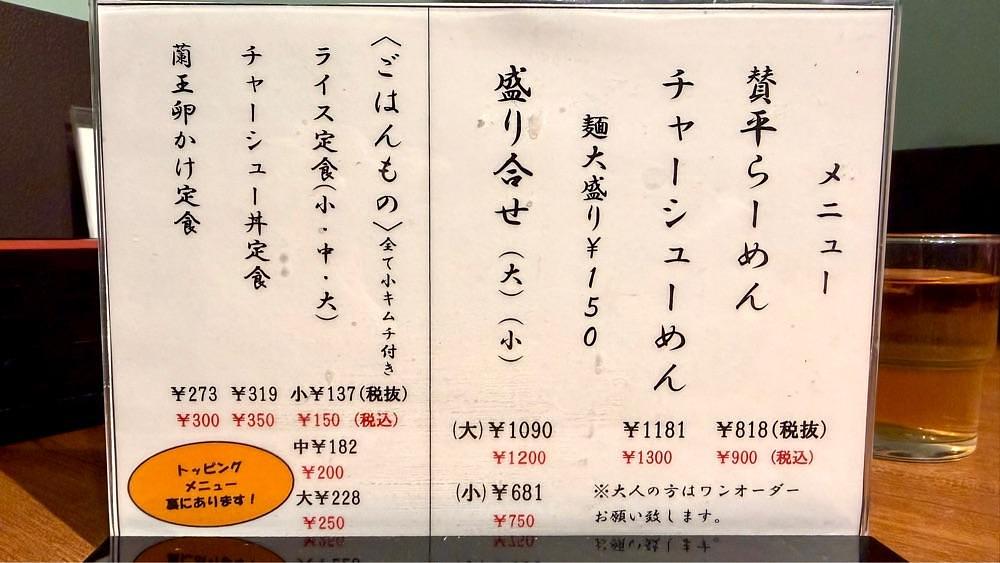 メニュー
賛平らーめん
¥818(税抜)
¥900 (税込)
チャーシューめん
¥1181
¥1300
麺大盛り¥150
盛り合せ (大)(小)
(大)¥1090
¥1200
(小)¥681
¥750
※大人の方はワンオーダー
お願い致します。
〈ごはんもの〉全て小キムチ付き
ライス定食(小・中・大)
小¥137(税抜)
¥150 (税込)
中¥182
¥200
大¥228
¥250
チャーシュー丼定食
¥319
¥350
蘭王卵かけ定食
¥273
¥300
トッピング
メニュー
裏にあります!